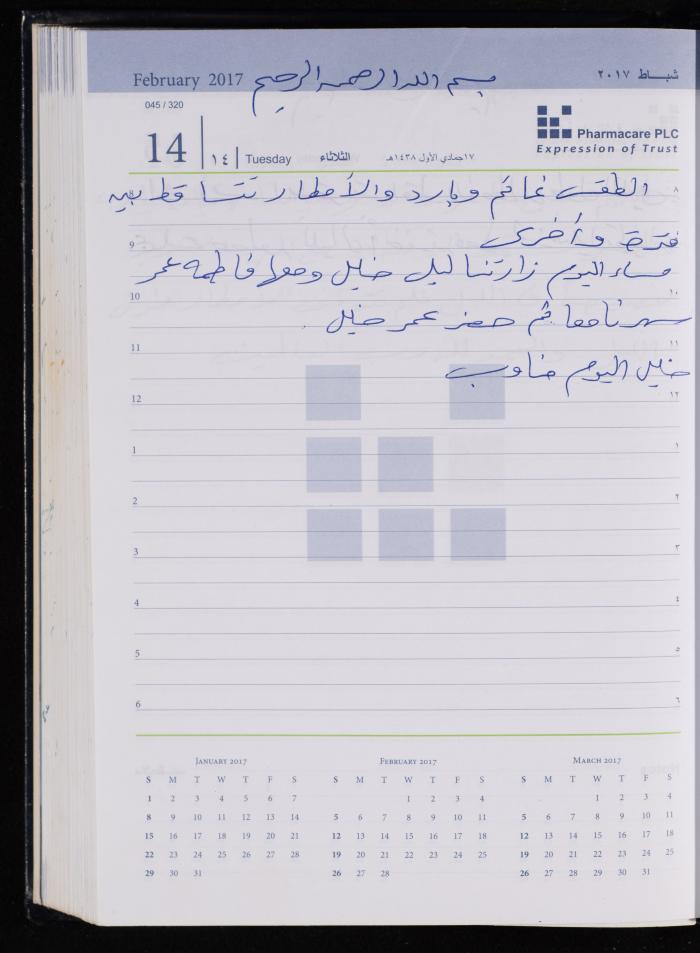 February 2017 بسم الله الرحمن الرحيم شباط ٢٠١٧
045 / 320
14 ١٤ Tuesday الثلاثاء ١٧ جمادي الأول ١٤٣٨هـ
Pharmacare PLC
Expression of Trust
الطقس غائم وبارد والأمطار تتساقط بين ٨
9 فترة وأخرى
مساء اليوم زارتنا ليلى خليل ومعها فاطمة عمر
10 ١٠
سهرنا معا ثم حضر عمر خليل .
11 ١١
خليل اليوم مناوب
12 ١٢
1 ١
2 ٢
3 ٣
4 ٤
5 ٥
6 ٦
JANUARY 2017
S M T W T F S
1 2 3 4 5 6 7
8 9 10 11 12 13 14
15 16 17 18 19 20 21
22 23 24 25 26 27 28
29 30 31
FEBRUARY 2017
S M T W T F S
1 2 3 4
5 6 7 8 9 10 11
12 13 14 15 16 17 18
19 20 21 22 23 24 25
26 27 28
MARCH 2017
S M T W T F S
1 2 3 4
5 6 7 8 9 10 11
12 13 14 15 16 17 18
19 20 21 22 23 24 25
26 27 28 29 30 31